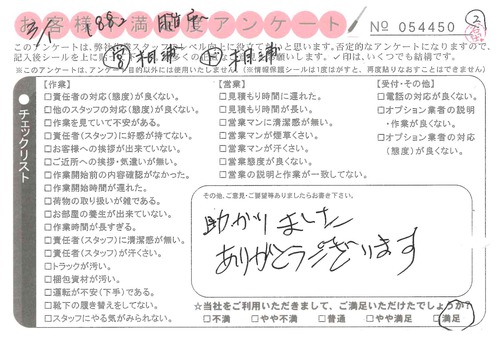 お客様不満度アンケート
No 054450
②
3/1
188.2
このアンケートは、弊社
記入後シールを上に貼
お願いします。✓印は、いくつでも結構です。
※このアンケートは、アンケート目的以外には使用いたしません。(※情報保護シールは1度がすと、再度貼りなおすことはできません)
営 相浦
相浦
チェックリスト
【作業】
□責任者の対応(態度)が良くない。
□他のスタッフの対応(態度)が良くない。
□作業を見ていて不安がある。
□責任者(スタッフ)に好感が持てない。
□お客様への挨拶が出来ていない。
□ご近所への挨拶・気遣いが無い。
□作業開始前の内容確認がなかった。
□作業開始時間が遅れた。
□荷物の取り扱いが雑である。
□お部屋の養生が出来ていない。
□作業時間が長すぎる。
□責任者(スタッフ)に清潔感が無い。
□責任者(スタッフ)が汗さい。
□トラックが汚い。
□梱包資材が汚い。
□運転が不安(下手)である。
□靴下の履き替えをしてない。
□スタッフにやる気がみられない。
【営業】
□見積もり時間に遅れた。
□見積もり時間が長い。
□営業マンに清潔感が無い。
□営業マンが煙草くさい。
□営業マンが汗さい。
□営業態度が良くない。
□営業の説明と作業が一致してない。
【受付・その他】
□電話の対応が良くない。
□オプション業者の説明
・作業が良くない。
□オプション業者の対応
(態度)が良くない。
その他、ご意見・ご要望等ありましたらお書き下さい。
助かりました
ありがとうございます
☆当社をご利用いただきまして、ご満足いただけたでしょうか?
□不満 □やや不満 □普通 □やや満足 □満足